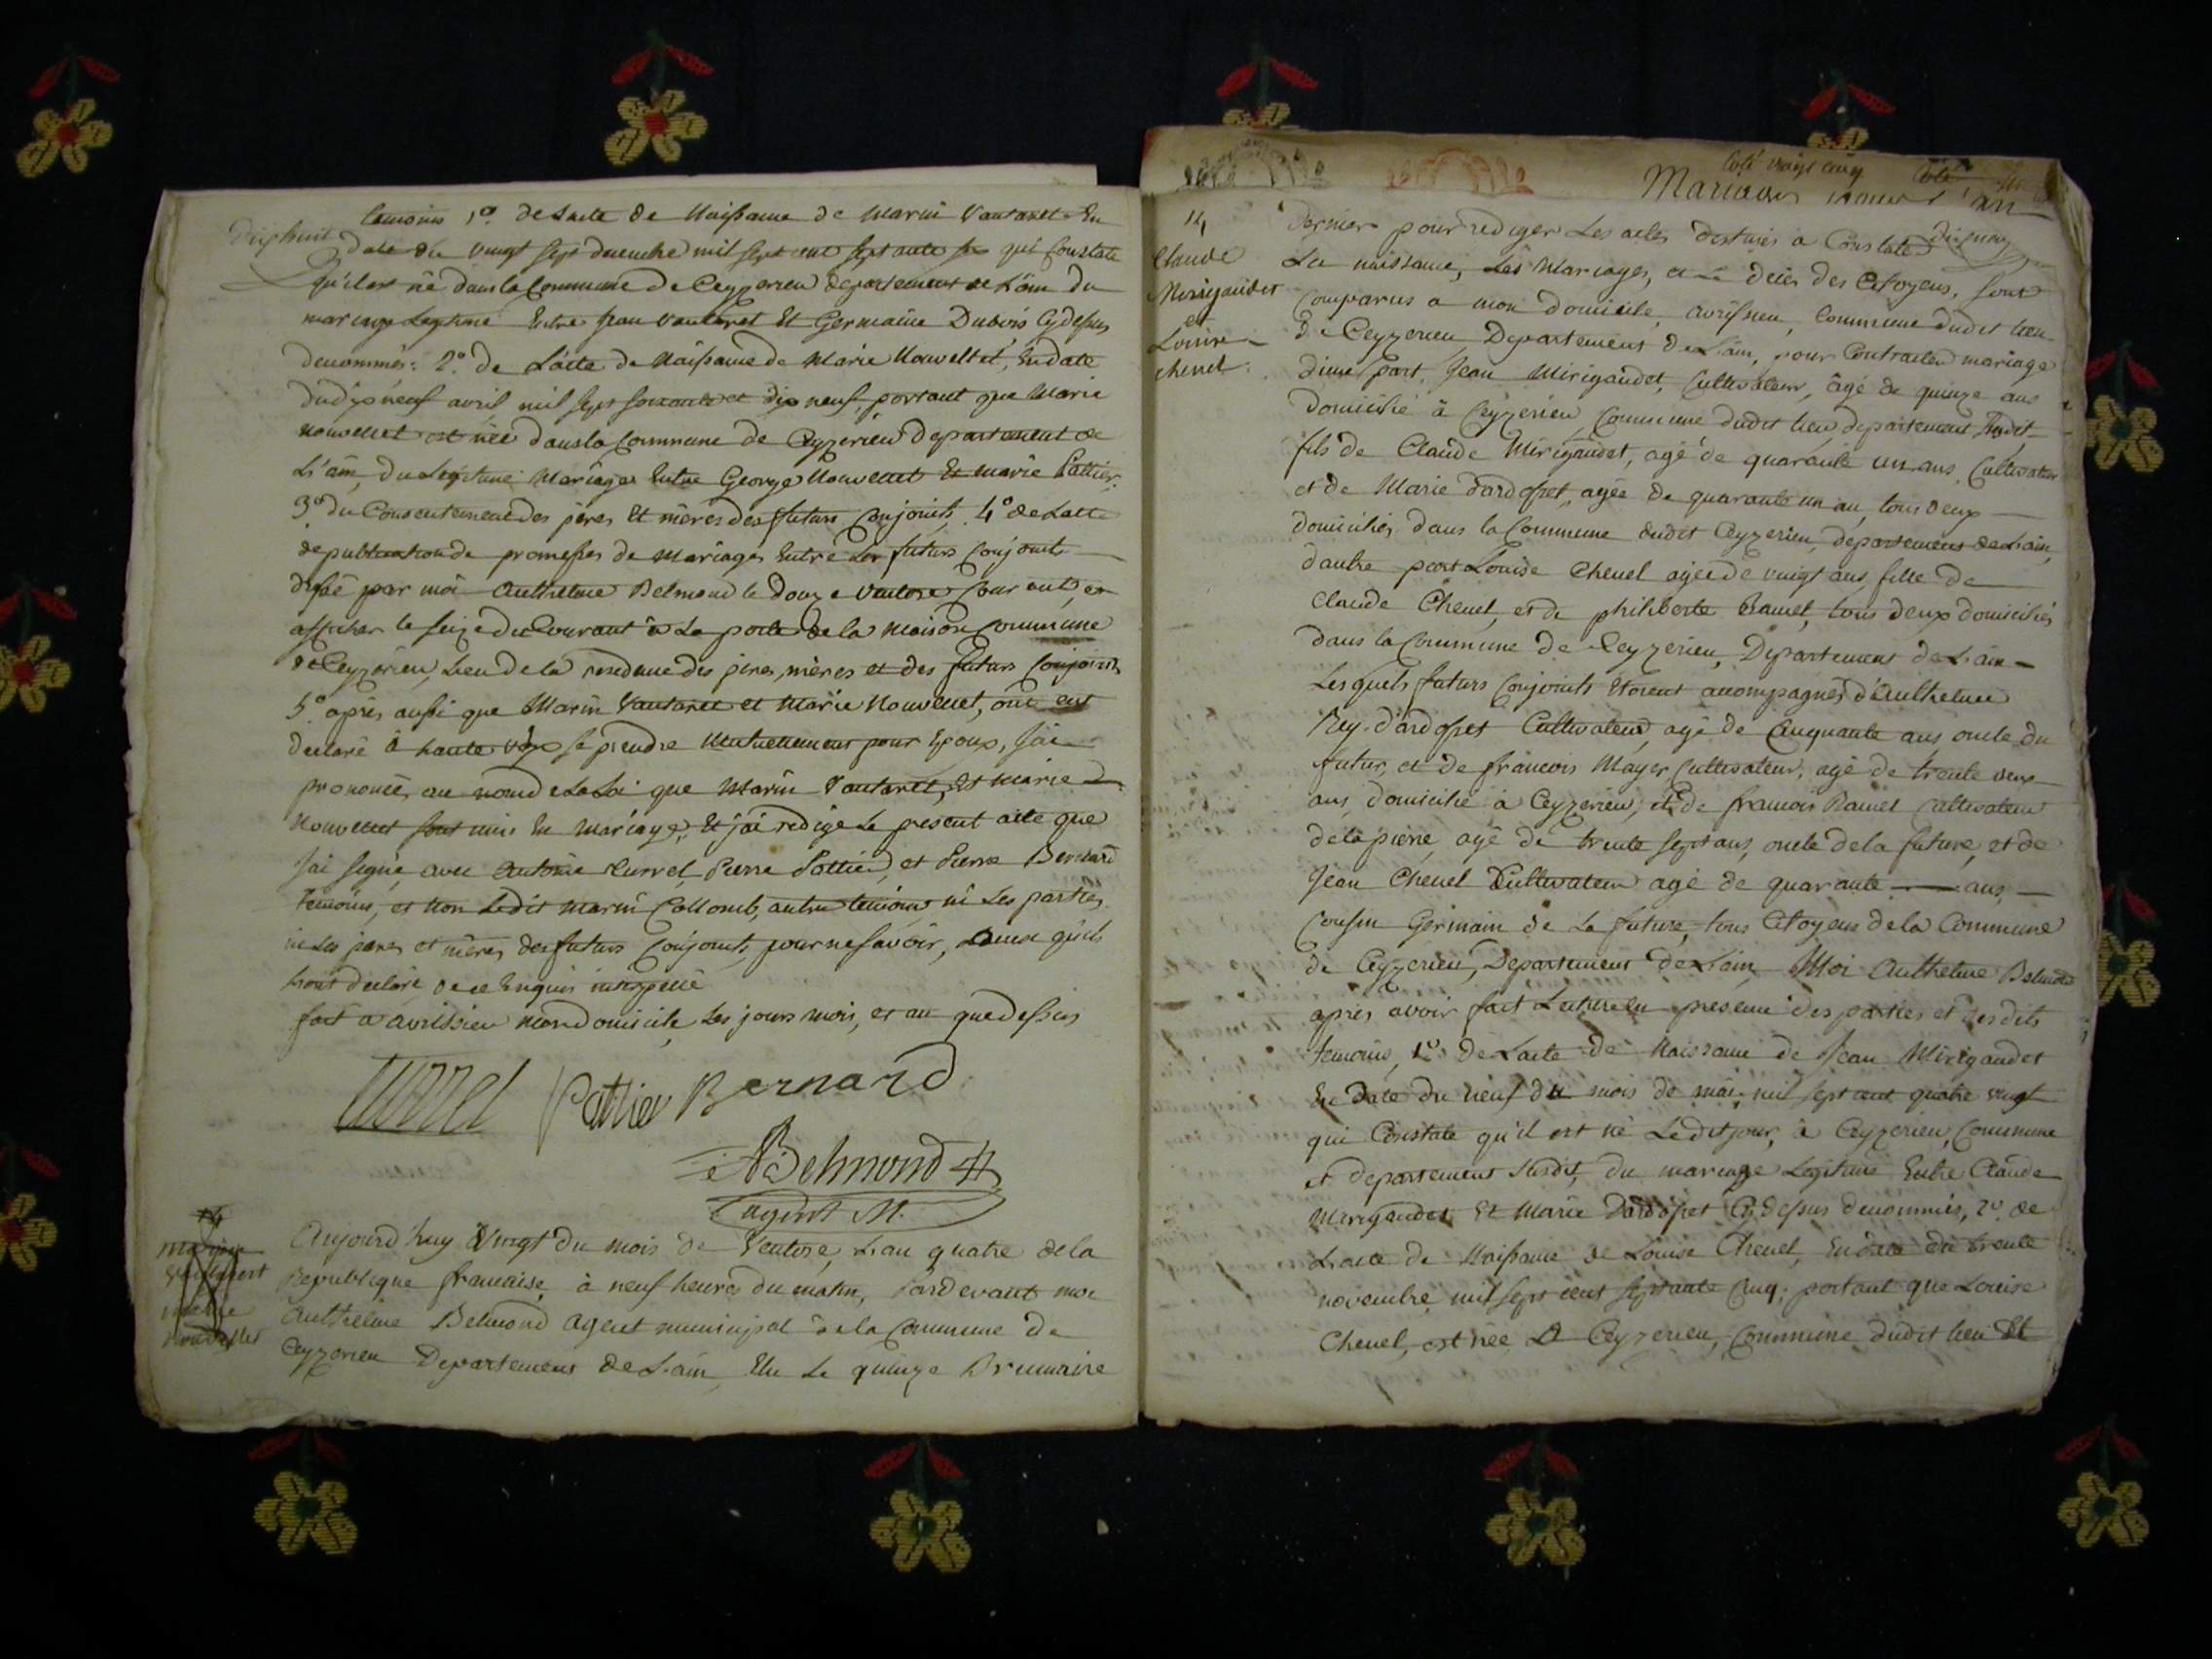 Dixhuit
temoins 1º de Lacte de Naissance de Marin Vautaret En
date du vingt sept decembre mil sept cent septante six qui Constate
qu'il est né dans la Commune de Ceyzerieu departement de L'ain du
mariage Legitime Entre Jean Vautaret Et Germaine Dubois Cy dessus
denommés: 2º. de L'acte de Naissance de Marie Nouvellet, En date
du dix neuf avril mil sept soixante et dix neuf portant que Marie
nouvellet est née dans la Commune de Ceyzerieu departement de
L'ain, du Legitime Mariage Entre George Nouvellet Et marie Pattier.
3º du Consentement des pères Et mères des futurs Conjoints 4º de Lacte
de publication de promesses de Mariages Entre Les futurs Conjoints
dressé par moi Anthelme Belmond le douze Ventose Courant, et
afficher le seize du Courant à La porte de la Maison Commune
de Ceyzerieu, Lieu de la residence des pères, mères et des futurs Conjoints
5º. après aussi que Marin Vautaret et Marie Nouvellet, ont eut
declaré à haute voix se prendre Mutuellement pour Epoux, J'ai
prononcé, au nom de La Loi que Marin Vautaret, Et Marie
Nouvellet sont unis En Mariage, Et j'ai redigé Le present acte que
J'ai signé, avec Antoine Curvel, Pierre Pattier, et Pierre Bernard
temoins, et Non Ledit Marin Collomb, autre temoins ni Les parties
ni Les peres et mères des futurs Conjoints, pour ne savoir, Ainsi qu'ils
L'ont declaré de ce Enquis interpellé
fait à avrissieu mon domicile Les jours mois, et an que dessus
Pattier Bernard
ABelmond
agent M.
mariage
nouvellet
Aujourd'huy Vingt du mois de Ventose, L'an quatre de la
Republique francaise, à neuf heures du matin, Pardevant moi
Anthelme Belmond Agent municipal de la Commune de
Ceyzerieu Departement de L'ain Elu Le quinze Brumaire
Coté vingt cinq
Mariages
14
Claude
Merigaudet
et
Louise
chenel
Dernier pour rediger Les actes destinés à Constater
Les naissance, Les Mariages, et Le décès des Citoyens, sont
Comparus à mon domicile, avrissieu, Commune dudit lieu
de Ceyzerieu Departement de L'ain, pour Contracter mariage
d'une part, Jean Mirigaudet, Cultivateur, âgé de quinze ans
domicilié à Ceyzerieu Commune dudit lieu departement susdit
fils de Claude Mirigaudet, agé de quarante un ans, Cultivateur
et de Marie Dardosset, agée de quarante un an, tous deux
domiciliés dans la Commune dudit Ceyzerieu, departement de L'ain,
d'autre part Louise Chenel agée de vingt ans, fille de
Claude Chenel, et de philiberte Ramel, tous deux domiciliés
dans la Commune de Ceyzerieu, Departement de L'ain
Lesquels futurs Conjoints Etoient accompagnés d'Anthelme
Rey-Dardosset Cultivateur, agé de Cinquante ans, oncle du
futur, et de francois Mayer Cultivateur, agé de trente deux
ans, domicilié à Ceyzerieu, et de francois Ramel Cultivateur
de la pierre, agé de trente sept ans, oncle de la future, et de
Jean Chenel Cultivateur agé de quarante ans,
Cousin Germain de La future, tous Citoyens de la Commune
de Ceyzerieu, Departement de L'ain, Moi Anthelme Belmond
après avoir fait Lecture En presence des parties et desdits
temoins, 1º. de Lacte de Naissance de Jean Mirigaudet
En date du neuf du mois de mai, mil sept cent quatre vingt
qui Constate qu'il est né Ledit jour, à Ceyzerieu, Commune
et departement susdit, du mariage Legitime Entre Claude
Mirigaudet Et Marie Dardosset Cy dessus denommés, 2º. de
Lacte de Naissance de Louise Chenel, En date du trente
novembre mil sept cent septante Cinq, portant que Louise
Chenel, est née à Ceyzerieu, Commune dudit lieu Et